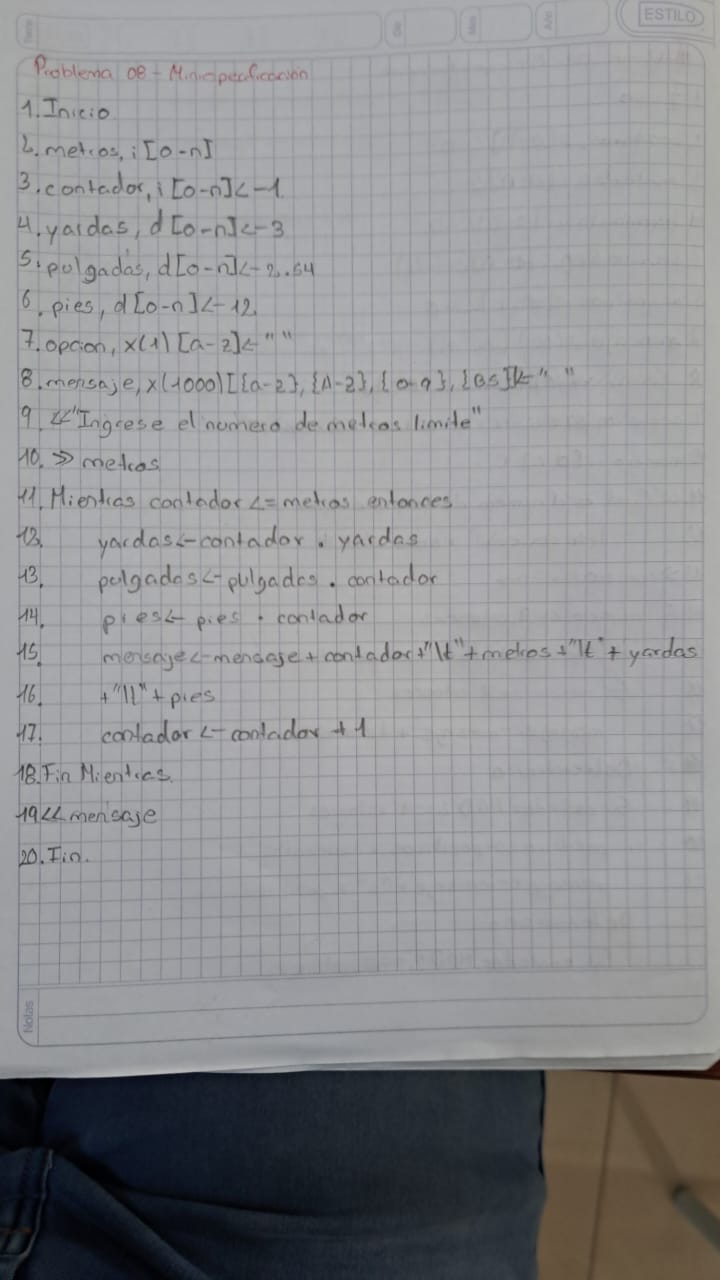 ESTILO
Problema 08 - Miniespecificación
1. Inicio
2. metros, i [0-n]
3. contador, i [0-n]<-1
4. yardas, d [0-n]<-3
5. pulgadas, d[0-n]<-2.54
6. pies, d [0-n]<-12
7. opcion, x(1) [a-z]<-" "
8. mensaje, x(1000)[{a-z}, {A-Z}, {0-9}, {BS}]<-" "
9. <<"Ingrese el numero de metros limite"
10. >> metros
11. Mientras contador <= metros entonces
12. yardas<-contador . yardas
13. pulgadas<-pulgadas . contador
14. pies<- pies . contador
15. mensaje<-mensaje + contador+"\t"+metros+"\t"+ yardas
16. +"\t"+ pies
17. contador <- contador + 1
18. Fin Mientras.
19 << mensaje
20. Fin.
Notas